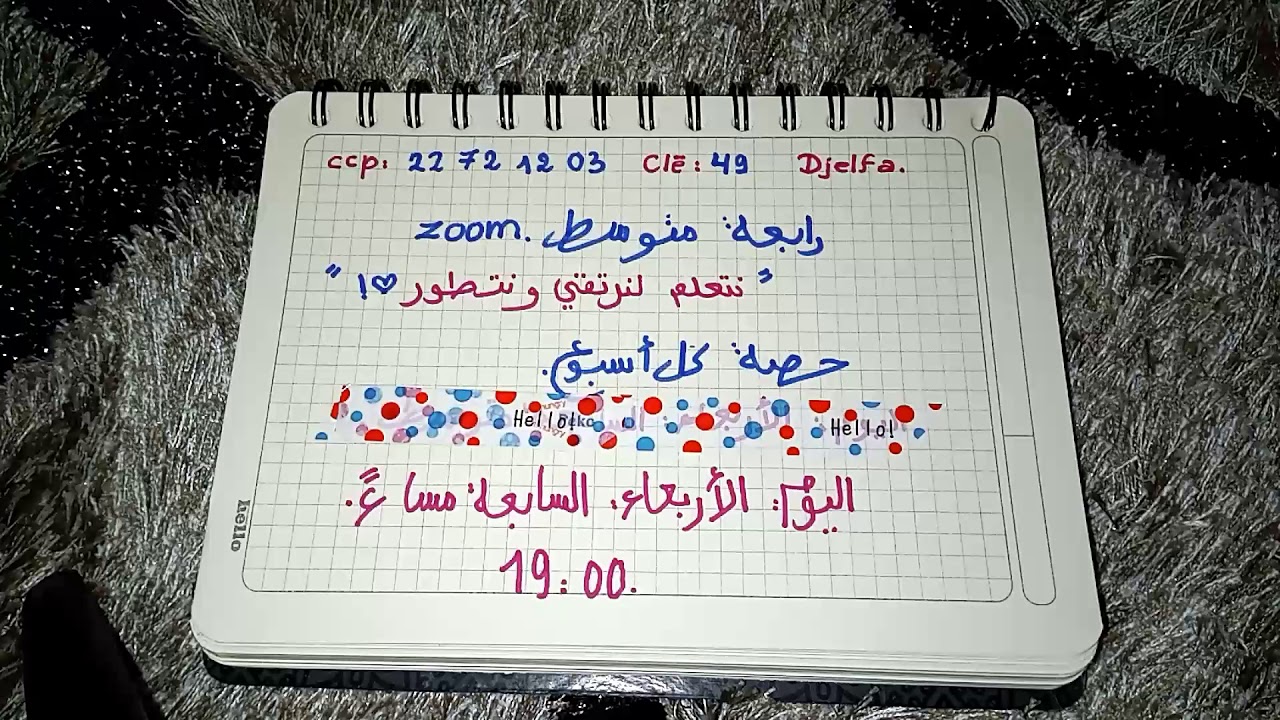 ccp: 22 72 12 03 Clē: 49 Djelfa.
رابعة متوسط. zoom.
"نتعلم لنرتقي ونتطور ♡!"
حصة كل أسبوع.
Hello! Hello!
اليوم: الأربعاء. السابعة مساءً.
19:00.
hello